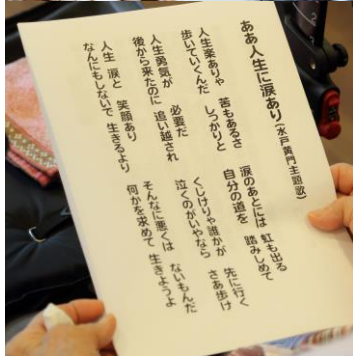 ああ人生に涙あり(水戸黄門主題歌)
人生楽ありゃ 苦もあるさ 涙のあとには 虹も出る
歩いていくんだ しっかりと 自分の道を 踏みしめて
人生勇気が 必要だ くじけりゃ誰かが 先に行く
後から来たのに 追い越され 泣くのがいやなら さあ歩け
人生 涙と 笑顔あり そんなに悪くは ないもんだ
なんにもしないで 生きるより 何かを求めて 生きようよ